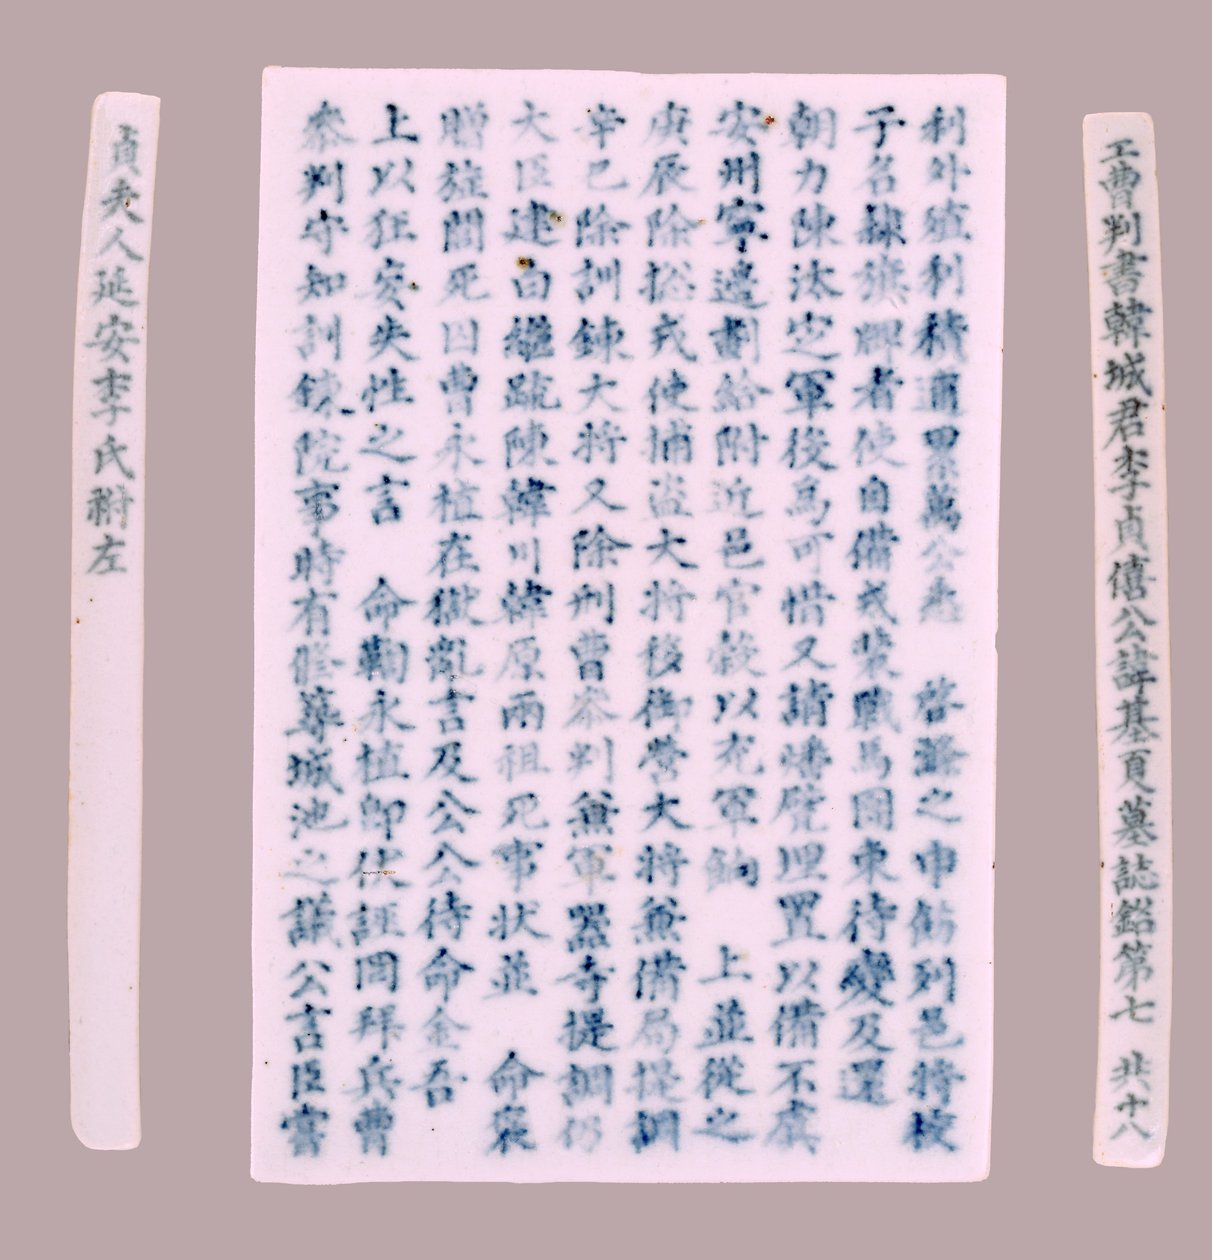 工曹判書韓城君李貞僖公諱基夏墓誌銘第七 共十八
利外殖利積逋累萬公悉 啓蠲之申飭列邑將校
子名隸旗牌者使自備戎裝戰馬團束待變及還
朝力陳汰定軍役爲可惜又請燔甓埋置以備不虞
安州寧邊劃給附近邑官穀以充軍餉 上並從之
庚辰除捴戎使捕盜大將移御營大將兼備局提調
辛巳除訓鍊大將又除刑曹參判兼軍器寺提調仍
大臣建白繼疏陳韓川韓原兩祖死事狀並 命褒
贈旌閭死囚曹永植在獄亂言及公公待命金吾
上以狂妄失性之言 命鞫永植卽伏誣罔拜兵曹
參判守知訓鍊院事時有修築城池之議公言臣嘗
貞夫人延安李氏祔左